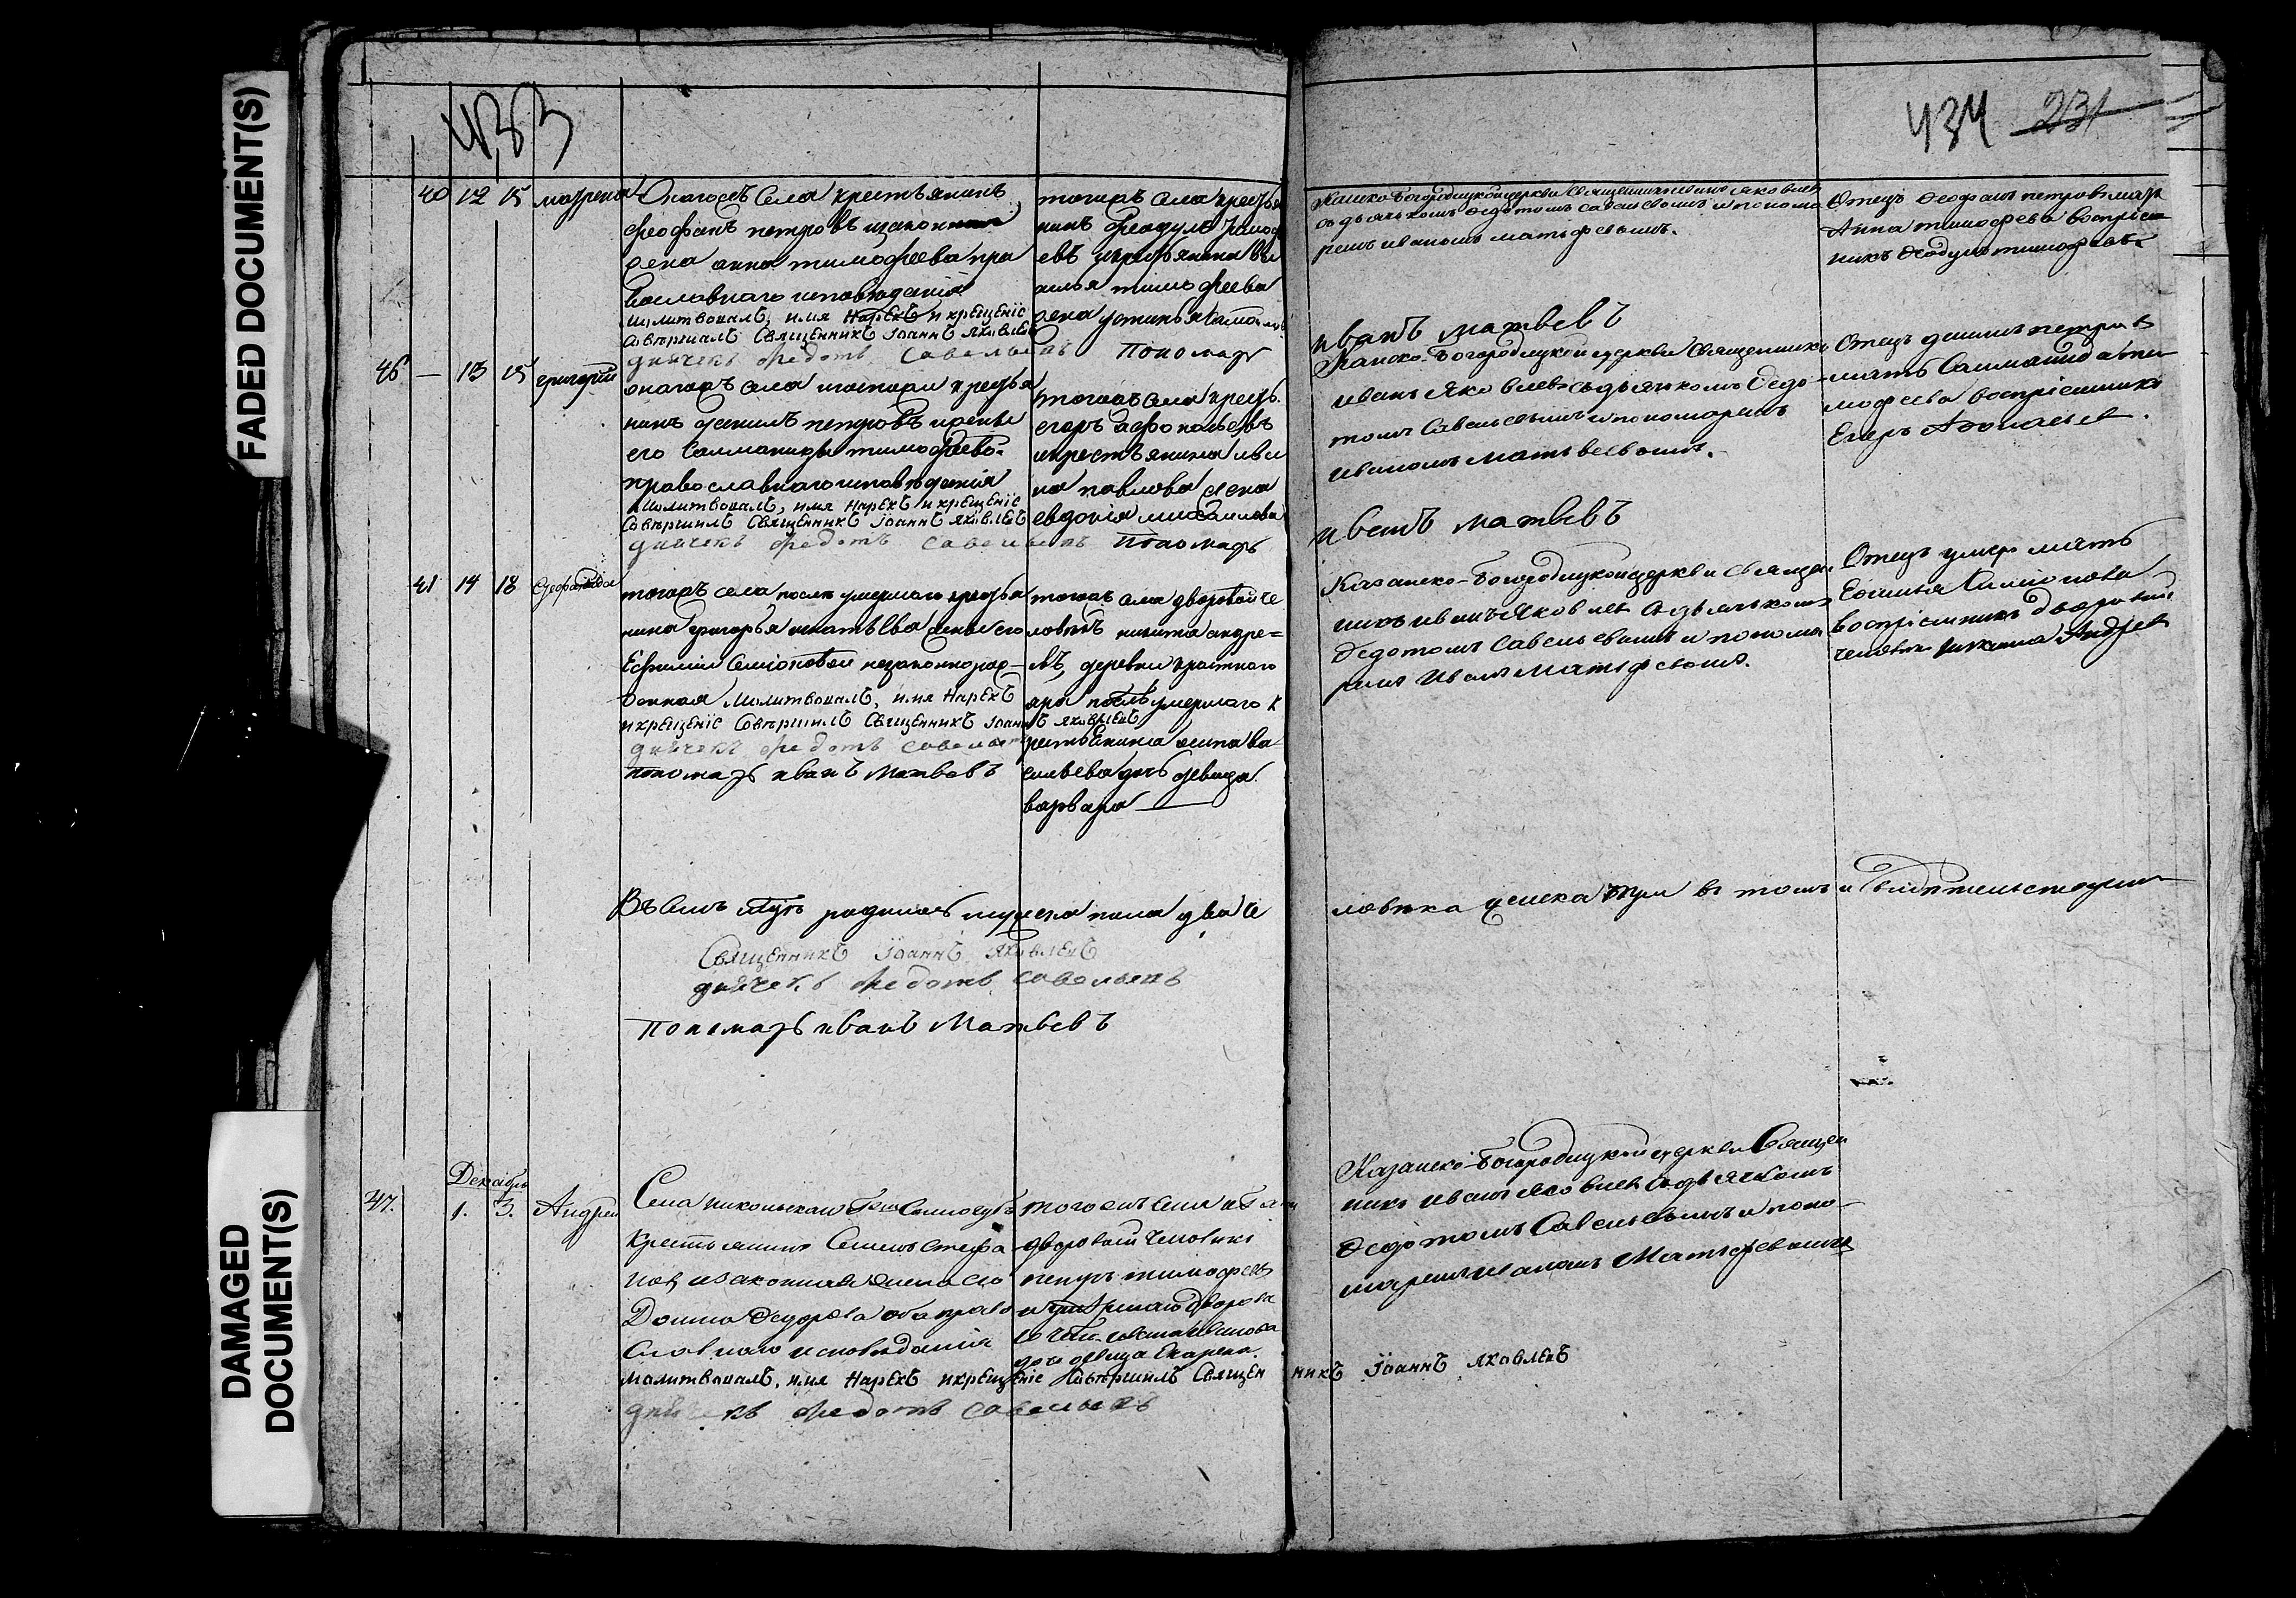 FADED DOCUMENT(S)
DAMAGED DOCUMENT(S)
433
434 231
40 12 15 матрена
Онагожъ Села крестьянинъ
феофанъ петровъ изакон
жена анна тимофеева пра
вославнаго исповѣданія
Молитвовалъ, имя Нарекъ и крещеніе
Совершилъ Священникъ Іоаннъ Яковлевъ
дьячекъ федотъ Савельевъ Пономарь
тогожъ Села кресть
нинъ феодулъ тимоф
евъ икрестьянина Ва
силья тимофеева
жена устинья
Казанско-Богородицкой церкви Священникъ иванъ Яковлев
съ дьячькомъ Ѳедотомъ Савельевымъ и понома
ремъ иваномъ матьфевымъ.
Отецъ Ѳеофанъ петровъ мать
Анна тимофеева Воспріем
никъ Ѳеодулъ тимофеевъ
иванъ матвевъ
46 — 13 15 григорій
онагожъ села крестья
нинъ данилъ петровъ ижены
его Саломаниды тимофеево
православнаго исповѣданія
Молитвовалъ, имя Нарекъ и крещеніе
Совершилъ Священникъ Іоаннъ Яковлевъ
дьячекъ федотъ Савельевъ Пономарь
тогожъ села кресть.
егоръ афонасьевъ
икрестьянина ива
на павлова жена
евдокія михаилова
Казанско-Богородицкой церкви Священникъ
иванъ Яковлевъ съ дьячкомъ Ѳедо
томъ Савельевымъ и пономаремъ
иваномъ матьвеевымъ.
Отецъ данилъ петровъ
мать Саломанида ти
мофеева воспріемникъ
Егоръ Афонасьев.
иванъ матвевъ
41 14 18
тогожъ села послѣ умершаго кресть
нина григорья игнатьева жены его
Ефимии Симіоновой незаконнорож-
денная Молитвовалъ, имя Нарекъ
и крещеніе Совершилъ Священникъ Іоаннъ Яковлевъ
дьячекъ федотъ Савельевъ
пономарь иванъ Матвевъ
тогожъ села дворовой че
ловѣкъ никита андре=
въ, деревни краснаго
яра послѣ умершаго к
рестьенина осипа ва
сильева дочь девица
варвара
Казанско-Богородицкой церкви Священ
никъ иванъ Яковлев съ дьячькомъ
Ѳедотомъ Савельевымъ и понома
ремъ Иваномъ Матьфевымъ.
Отецъ умеръ мать
Ефимья Симионова
воспріемникъ дворовый
человѣкъ никита Андрев
Въ семъ родилось мужеска пола два че
ловѣка женска три въ томъ и свидетельствуемъ
Священникъ Іоаннъ Яковлевъ
дьячекъ федотъ Савельевъ
Пономарь иванъ Матвевъ
Декабрь
47. 1. 3. Андрей
Села никольскаго
Крестьянинъ Семенъ Стефа
новъ изаконная жена его
Домна Ѳедорова оба право
славнаго исповѣданія
Молитвовалъ, имя Нарекъ и крещеніе Совершилъ Священникъ Іоаннъ Яковлевъ
дьячекъ федотъ Савельевъ
тогожъ села
дворовой человѣкъ
петръ тимофеевъ
и дворова
го чело. ивана иванова
дочь девица
Казанско-Богородицкой церкви Священ
никъ иванъ Яковлев съ дьячкомъ
Ѳедотомъ Савельевымъ и поно-
маремъ иваномъ Матьфевымъ